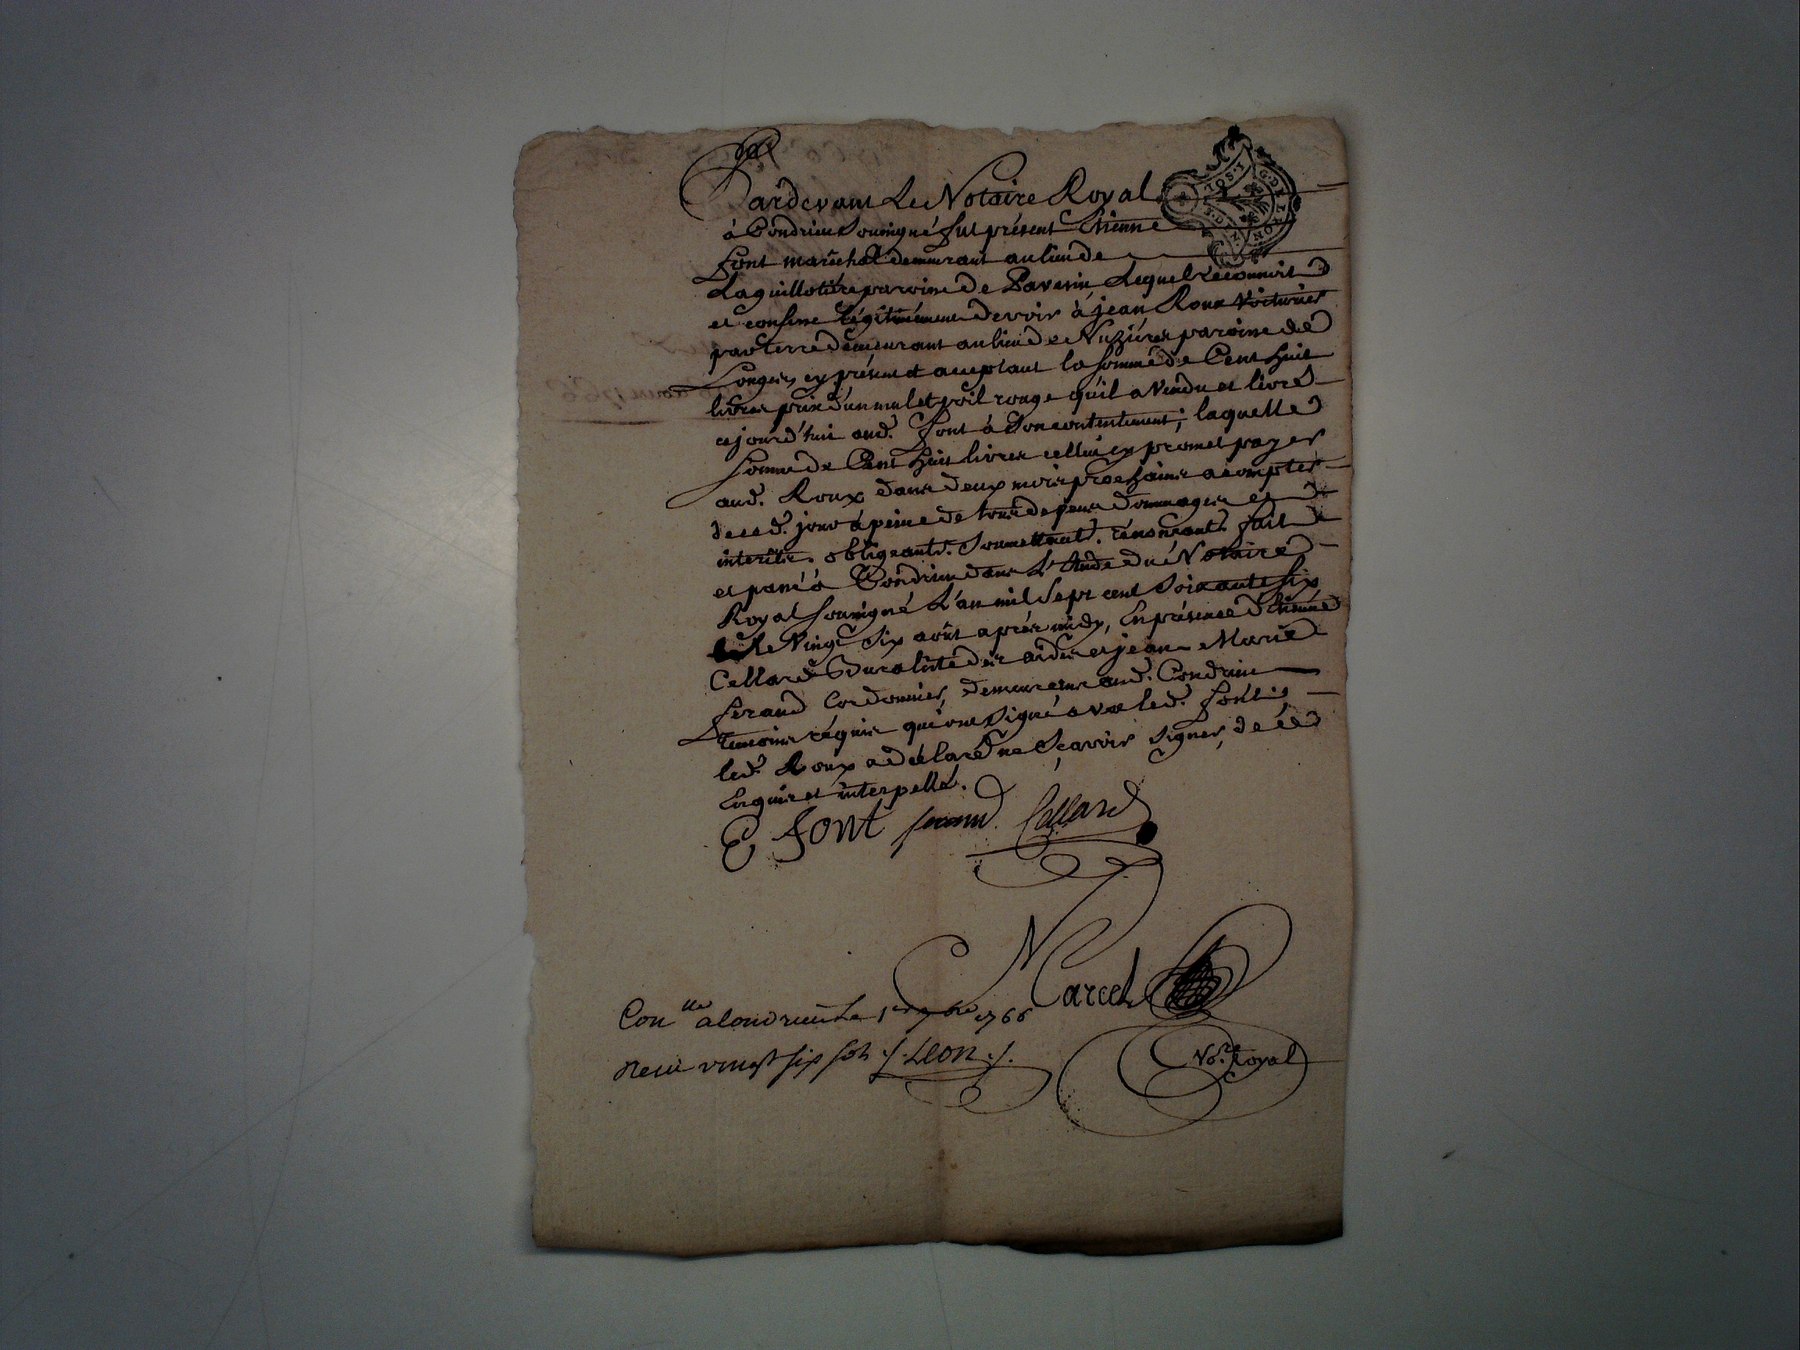 Pardevant Le Notaire Royal
à Condrieu soussigné fut présent Etienne
font maréchal demeurant au lieu de
Laguillotière paroisse de Pavesin, Lequel reconnoit
et confesse légitimement devoir à jean Roux Voiturier
par terre demeurant au lieu de Nuzières paroisse de
Longes, cy présent et acceptant la somme de Cent huit
livres prix d'un mulet poil rouge qu'il a Vendu et livré
cejourd'hui aud. font à son contentement; laquelle
somme de Cent huit livres celluicy promet payer
aud. Roux dans deux mois prochains a compter
de ced. jour à peine de tous depens dommages et
interêts. obligeants. Soumettants. renonceants. fait
et passé à Condrieu dans L'Etude du Notaire
Royal soussigné L'an mil sept cent soixante six
le Vingt six août après midy, En présence d'Etienne
Cellard Buraliste des aides et jean Marie
ferand Cordonnier, demeurans aud. Condrieu
temoins réquis qui ont signé avec led. font;
led. Roux a déclaré ne sçavoir signer, de ce
Enquis et interpellé.
E font ferand Cellard
Marcel
Con.lle a Condrieu Le 1er 7bre 1766
Receu vingt six sols J. Leon J.
No.re Royal